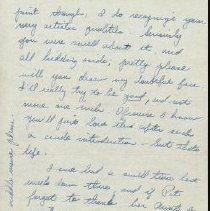 point though, I do recognize your
very artistic qualities. Seriously
you were swell about it, and
all kidding aside, pretty please
will you draw my faithful face.
I'll really try to be good, and not
more one inch. Of course I know
you'll quite love this after such
a crude introduction - but that's
life.
I was but a small time last
week down there, and if Pat
forgot to thank her Aunt &